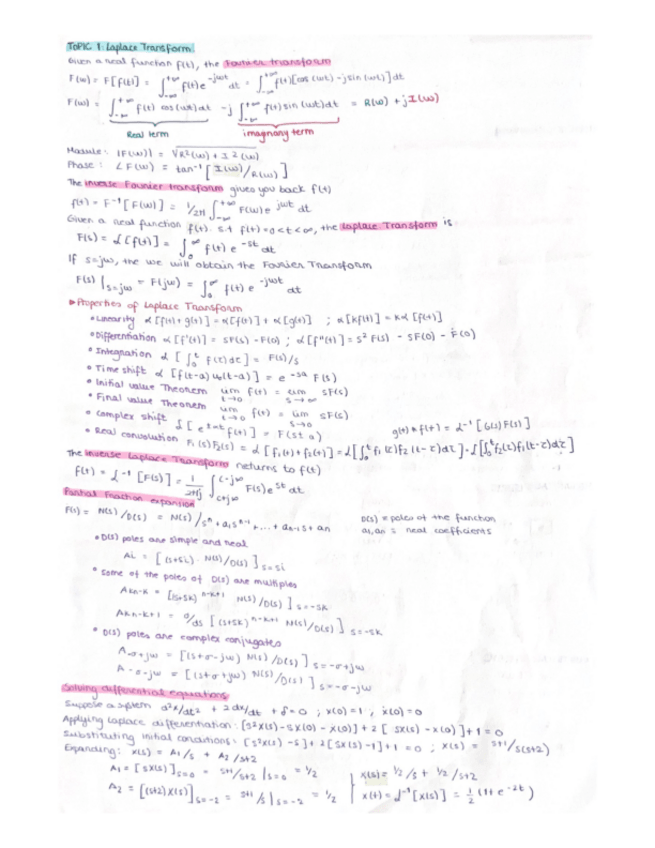 TOPIC 1: Laplace Transform:
Given a real function f(t), the Fourier transform
F(ω) = F[f(t)] = ∫_{-∞}^{+∞} f(t)e^{-jωt} dt = ∫_{-∞}^{+∞} f(t)[cos(ωt) - j sin(ωt)]dt
F(ω) = ∫_{-∞}^{+∞} f(t) cos(ωt)dt - j ∫_{-∞}^{+∞} f(t) sin(ωt)dt = R(ω) + jI(ω)
Real term imaginary term
Module: |F(ω)| = √R²(ω) + I²(ω)
Phase: ∠F(ω) = tan⁻¹ [I(ω)/R(ω)]
The inverse Fourier transform gives you back f(t)
f(t) = F⁻¹[F(ω)] = 1/2π ∫_{-∞}^{+∞} F(ω)e^{jωt} dt
Given a real function f(t) s.t f(t)=0<t<∞, the Laplace Transform is:
F(s) = L[f(t)] = ∫_0^∞ f(t) e^{-st} dt
If s=jω, the we will obtain the Fourier Transform
F(s)|_{s=jω} = F(jω) = ∫_0^∞ f(t) e^{-jωt} dt
▶Properties of Laplace Transform
• Linearity L[f(t)+g(t)] = L[f(t)] + L[g(t)] ; L[kf(t)] = kL[f(t)]
• Differentiation L[f'(t)] = SF(s) - F(0) ; L[f''(t)] = s²F(s) - SF(0) - Ḟ(0)
• Integration L[∫_0^t f(τ)dτ] = F(s)/s
• Time shift L[f(t-a)u₀(t-a)] = e^{-sa} F(s)
• Initial value Theorem lim_{t→0} f(t) = lim_{s→∞} SF(s)
• Final value Theorem lim_{t→∞} f(t) = lim_{s→0} SF(s)
• Complex shift L[e^{±at} f(t)] = F(s±a)
g(t) * f(t) = L⁻¹[G(s)F(s)]
• Real convolution F₁(s)F₂(s) = L[f₁(t)*f₂(t)] = L[∫_0^t f₁(τ)f₂(t-τ)dτ] = L[∫_0^t f₂(τ)f₁(t-τ)dτ]
The inverse Laplace Transform returns to f(t)
f(t) = L⁻¹[F(s)] = 1/2πj ∫_{c+jω}^{c-jω} F(s)e^{st} dt
Partial fraction expansion
F(s) = N(s)/D(s) = N(s)/sⁿ+a₁sⁿ⁻¹+...+aₙ₋₁s+an
D(s) = poles of the function
a₁,an = real coefficients
• D(s) poles are simple and real
Ai = [(s+si). N(s)/D(s)]_{s=si}
• Some of the poles of D(s) are multiples
Akn-k = [(s+sk)^{n-k+1} N(s)/D(s)]_{s=-sk}
Akn-k+1 = d/ds [(s+sk)^{n-k+1} N(s)/D(s)]_{s=-sk}
• D(s) poles are complex conjugates
A-σ+jω = [(s+σ-jω) N(s)/D(s)]_{s=-σ+jω}
A-σ-jω = [(s+σ+jω) N(s)/D(s)]_{s=-σ-jω}
Solving differential equations
Suppose a system d²x/dt² + 2dx/dt + δ=0 ; x(0)=1 ; ẋ(0)=0
Applying Laplace differentiation: [s²X(s)-sX(0)-ẋ(0)]+2[SX(s)-x(0)]+1=0
Substituting initial conditions: [s²x(s)-s]+2[SX(s)-1]+1=0 ; X(s) = s+1/s(s+2)
Expanding: X(s) = A₁/s + A₂/s+2
A₁ = [SX(s)]_{s=0} = s+1/s+2|_{s=0} = 1/2
X(s) = 1/2/s + 1/2/s+2
A₂ = [(s+2)X(s)]_{s=-2} = s+1/s|_{s=-2} = 1/2
x(t) = L⁻¹[X(s)] = 1/2 (1+e^{-2t})